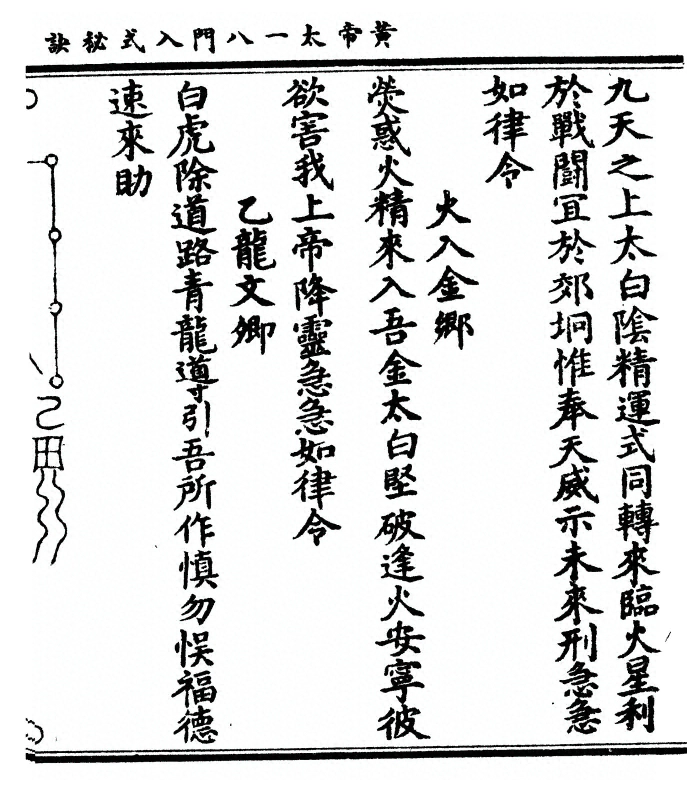 黃帝太一八門入式秘訣
九天之上太白陰精運式同轉來臨火星利
於戰鬪宜於郊坰惟奉天威示未來刑急急
如律令
火入金鄉
熒惑火精來入吾金太白堅破逢火安寧彼
欲害我上帝降靈急急如律令
乙龍文卿
白虎除道路青龍導引吾所作慎勿悞福德
速來助
乙田